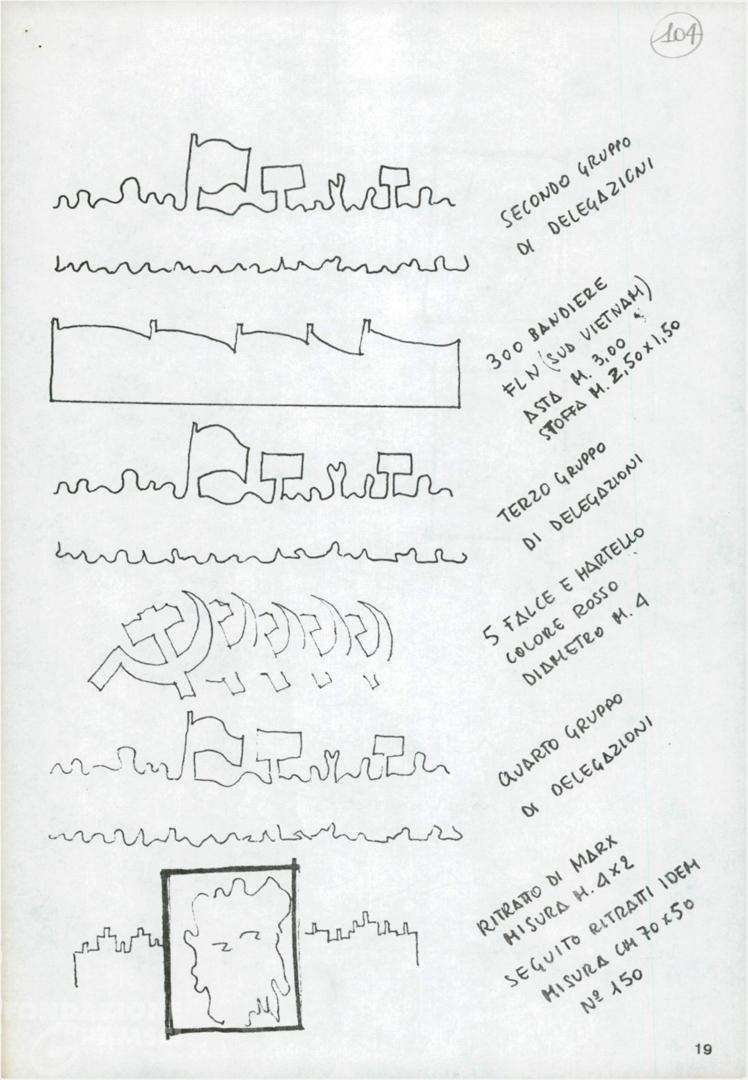 104
SECONDO GRUPPO
DI DELEGAZIONI
300 BANDIERE
FLN (SUD VIETNAM)
ASTA M. 3,00
STOFFA M. 2,50 x 1,50
TERZO GRUPPO
DI DELEGAZIONI
5 FALCE E MARTELLO
COLORE ROSSO
DIAMETRO M. 4
QUARTO GRUPPO
DI DELEGAZIONI
RITRATTO DI MARX
MISURA M. 4x2
SEGUITO RITRATTI IDEM
MISURA CM 70 x 50
Nº 150
FONDAZIONE
19